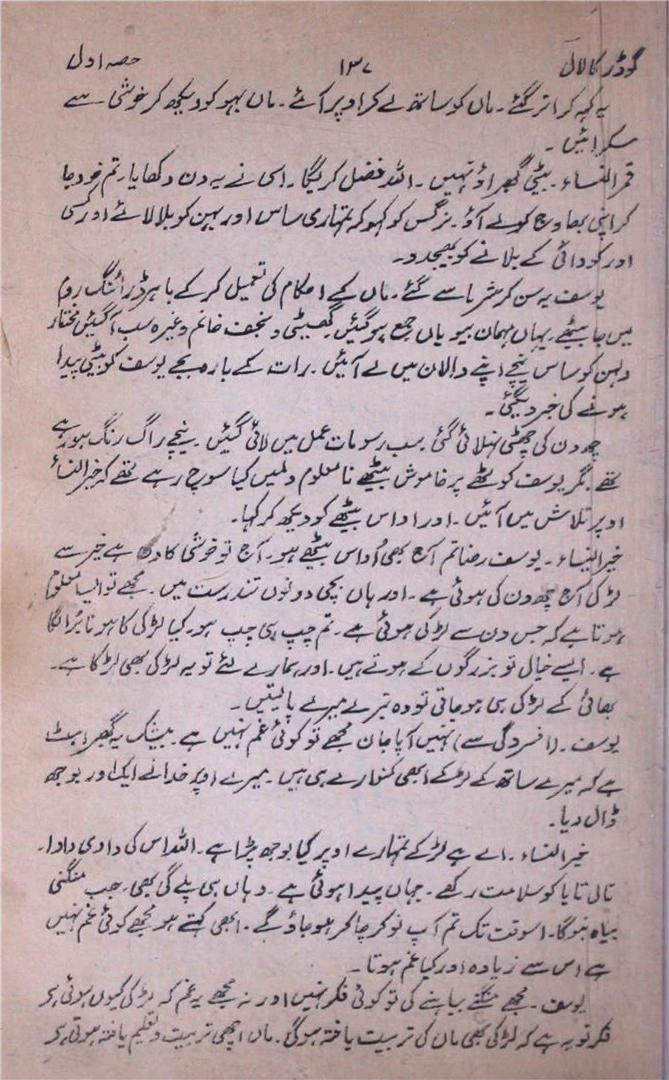 گودڑ کا لال ۱۳۷ حصہ اول
یہ کہہ کر اتر گئے۔ ماں کو ساتھ لے کر اوپر آئے۔ ماں بہو کو دیکھ کر خوشی سے
مسکرائیں۔
قمرالنساء۔ بیٹی گھبراؤ نہیں۔ اللہ فضل کریگا۔ اسی نے یہ دن دکھایا۔ تم خود جا
کر اپنی بھاوج کو لے آؤ۔ نرگس کو کہو کہ تمہاری ساس اور بہن کو بلا لائے اور کسی
اور کو دائی کے بلانے کو بھیجدو۔
یوسف یہ سن کر شرما سے گئے۔ ماں کے احکام کی تعمیل کر کے باہر ڈرائنگ روم
میں جا بیٹھے۔ یہاں مہمان بیویاں جمع ہوگئیں گھسیٹی و نجف خانم وغیرہ سب آگئیں مختار
دلہن کو ساس نیچے اپنے دالان میں لے آئیں۔ رات کے بارہ بجے یوسف کو بیٹی پیدا
ہونے کی خبر دیگئی۔
چھ دن کی چھٹی نہلائی گئی سب رسومات عمل میں لائی گئیں۔ نیچے راگ رنگ ہو رہے
تھے مگر یوسف کوٹھے پر خاموش بیٹھے نامعلوم دلمیں کیا سوچ رہے تھے کہ خیرالنساء
اوپر تلاش میں آئیں۔ اور اداس بیٹھے کو دیکھ کر کہا۔
خیرالنساء۔ یوسف رضا تم آج بھی اُداس بیٹھے ہو۔ آج تو خوشی کا دن ہے خیر سے
لڑکی آج چھ دن کی ہوئی ہے۔ اور ماں بچی دونوں تندرست ہیں۔ مجھے تو ایسا معلوم
ہوتا ہے کہ جس دن سے لڑکی ہوئی ہے۔ تم چپ ہی چپ ہو۔ کیا لڑکی کا ہونا برا لگا
ہے۔ ایسے خیال تو بزرگوں کے ہوتے ہیں۔ اور ہمارے لئے تو یہ لڑکی بھی لڑکا ہے۔
بھائی کے لڑکی ہی ہو جاتی تو وہ تیرے میرے پالیتیں۔
یوسف۔ (افسردگی سے) نہیں آپا جان مجھے تو کوئی غم نہیں ہے۔ بیشک یہ گھبراہٹ
ہے کہ میرے ساتھ کے لڑکے ابھی کنوارے ہی ہیں۔ میرے اوپر خدا نے ایک اور بوجھ
ڈال دیا۔
خیرالنساء۔ اے ہے لڑکے تمہارے اوپر کیا بوجھ پڑا ہے۔ اللہ اس کی دادی دادا۔
تائی تایا کو سلامت رکھے۔ جہاں پیدا ہوئی ہے۔ وہاں ہی پلے گی بھی۔ جب منگنی
بیاہ ہوگا۔ اسوقت تک تم آپ نوکر چاکر ہو جاؤ گے۔ ابھی کہتے ہو مجھے کوئی غم نہیں
ہے اس سے زیادہ اور کیا غم ہوتا۔
یوسف۔ مجھے منگنے بیاہنے کی تو کوئی فکر نہیں اور نہ مجھے یہ غم کہ لڑکی کیوں ہوئی
فکر تو یہ ہے کہ لڑکی بھی ماں کی تربیت یافتہ ہوگی۔ ماں اچھی تربیت و تعلیم یافتہ ہوتی